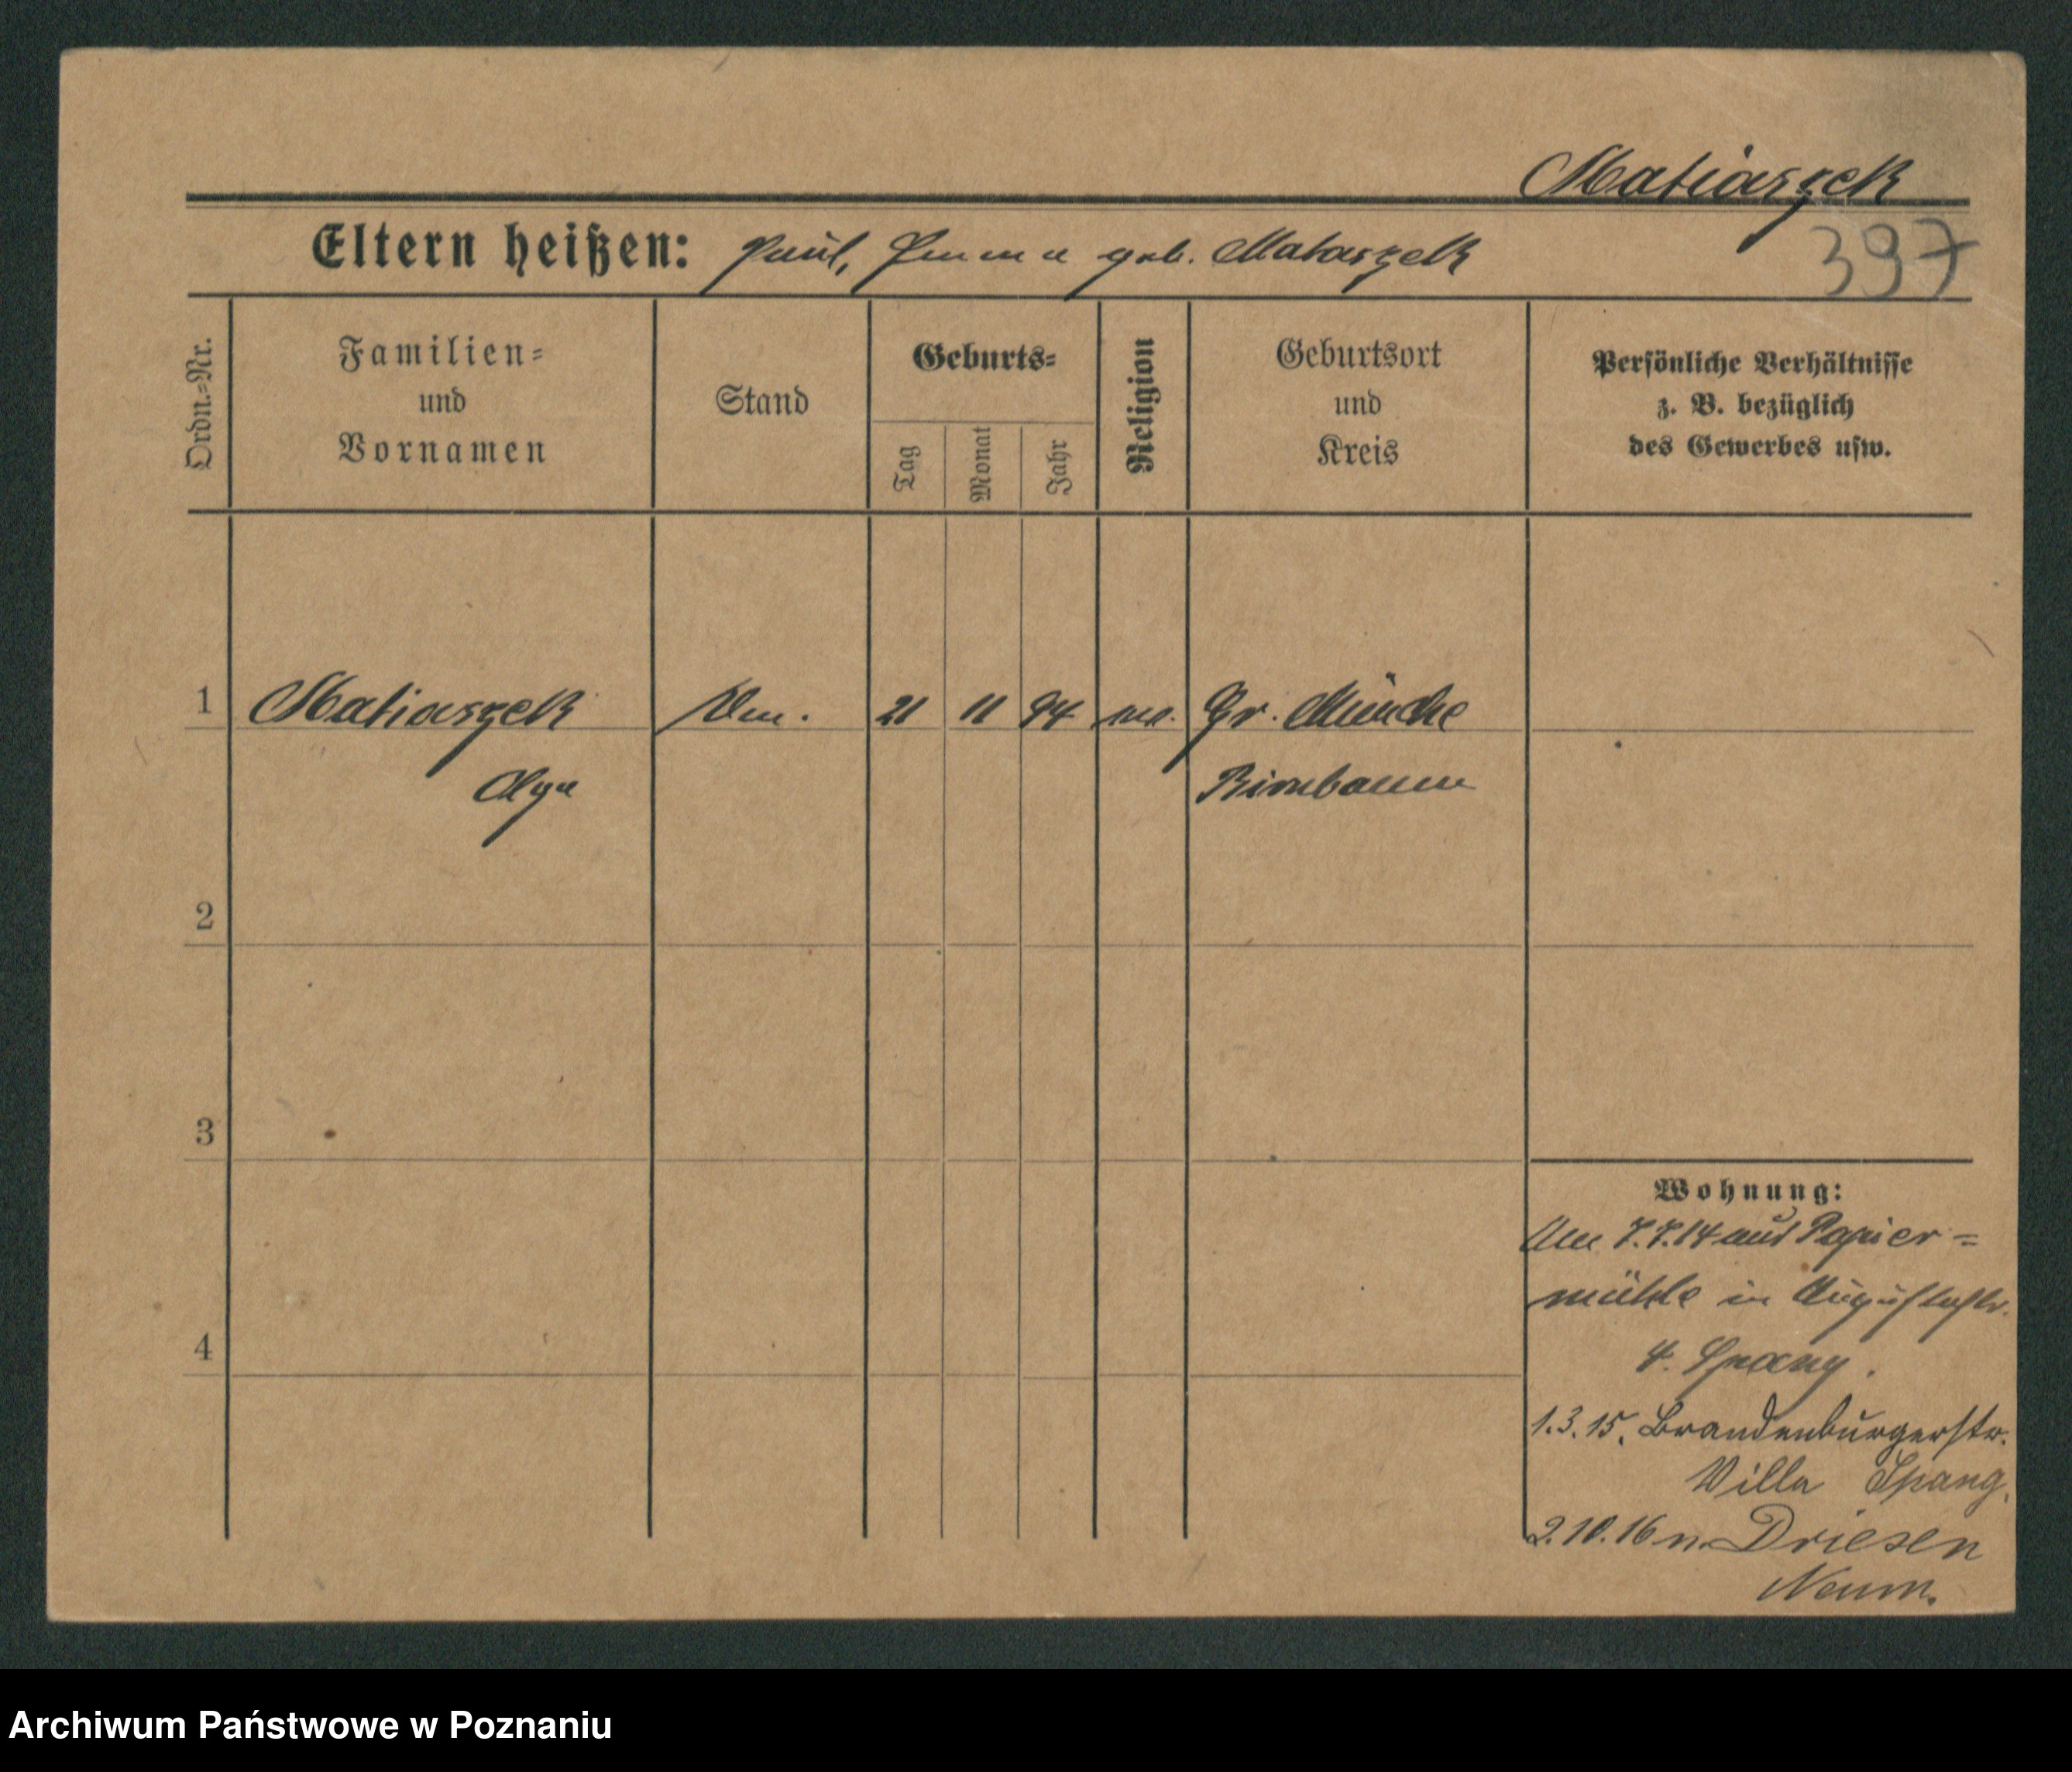 Matiaszek
Eltern heißen: Paul, Emma geb. Mataszek
397
Ordn.=Nr.
Familien=
und
Vornamen
Stand
Geburts=
Tag
Monat
Jahr
Religion
Geburtsort
und
Kreis
Persönliche Verhältnisse
z. B. bezüglich
des Gewerbes usw.
1 Matiaszek 21 11 94 Gr. Münche
Olga Birnbaum
2
3
4
Wohnung:
7.7.14 aus Papier=
mühle in Augustastr.
4. Spang.
1.3.15. Brandenburgerstr.
Villa Spang.
2.10.16 n. Driesen
Neum.
Archiwum Państwowe w Poznaniu